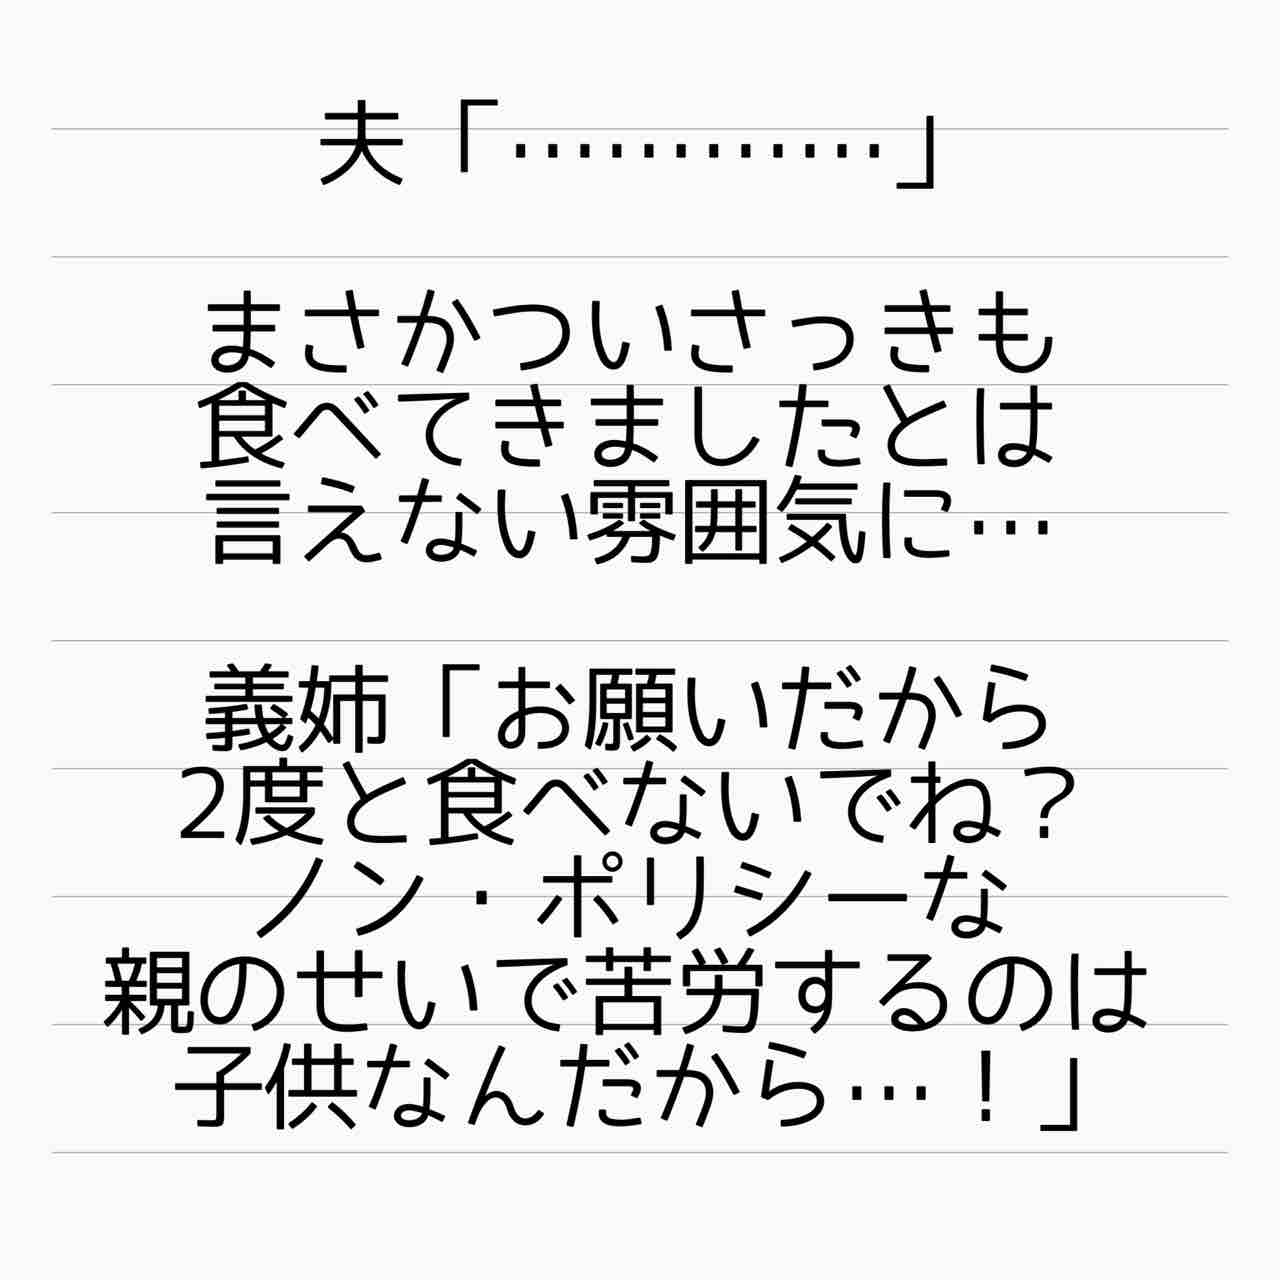 夫「…………」
まさかついさっきも
食べてきましたとは
言えない雰囲気に…
義姉「お願いだから
2度と食べないでね？
ノン・ポリシーな
親のせいで苦労するのは
子供なんだから…！」